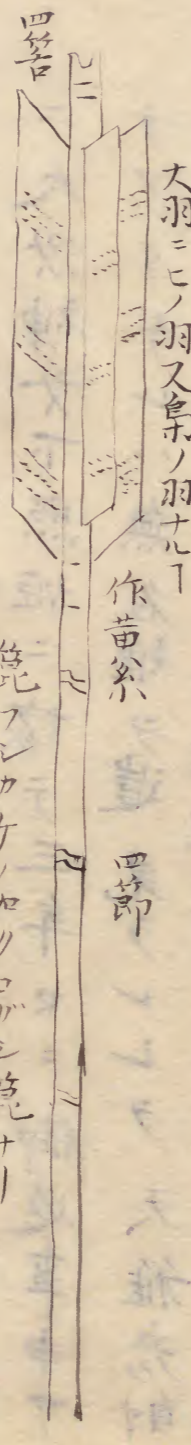 大羽ニヒノ羽又梟ノ羽ナルヿ
四節
作苗糸
四筈
篦フシカケノヤリコガシ篦ナリ